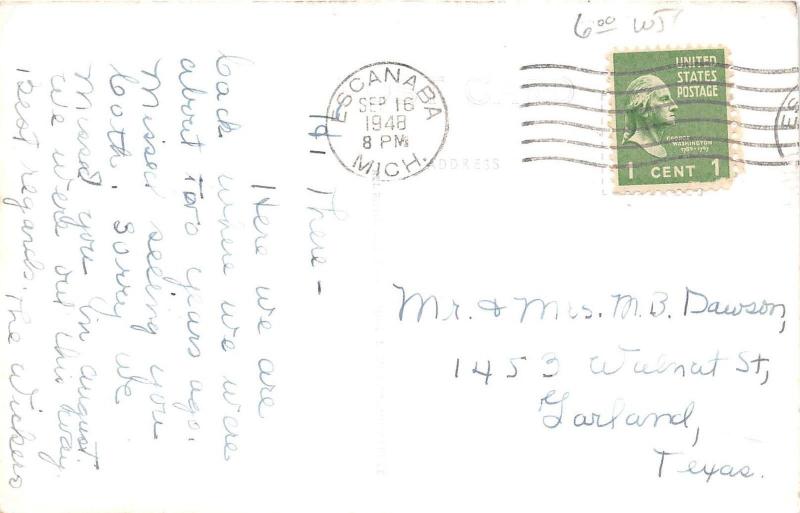 6.00 WJ
ESCANABA
SEP 16
1948
8 PM
MICH.
UNITED
STATES
POSTAGE
GEORGE
WASHINGTON
1789-1797
1 CENT 1
ADDRESS
Hi There -
Here we are
back where we were
about two years ago.
Missed seeing you
both. Sorry we
Missed you in august.
We were out this way.
Best regards. The Wickers
Mr. & Mrs. M.B. Dawson,
1453 Walnut St,
Garland,
Texas.